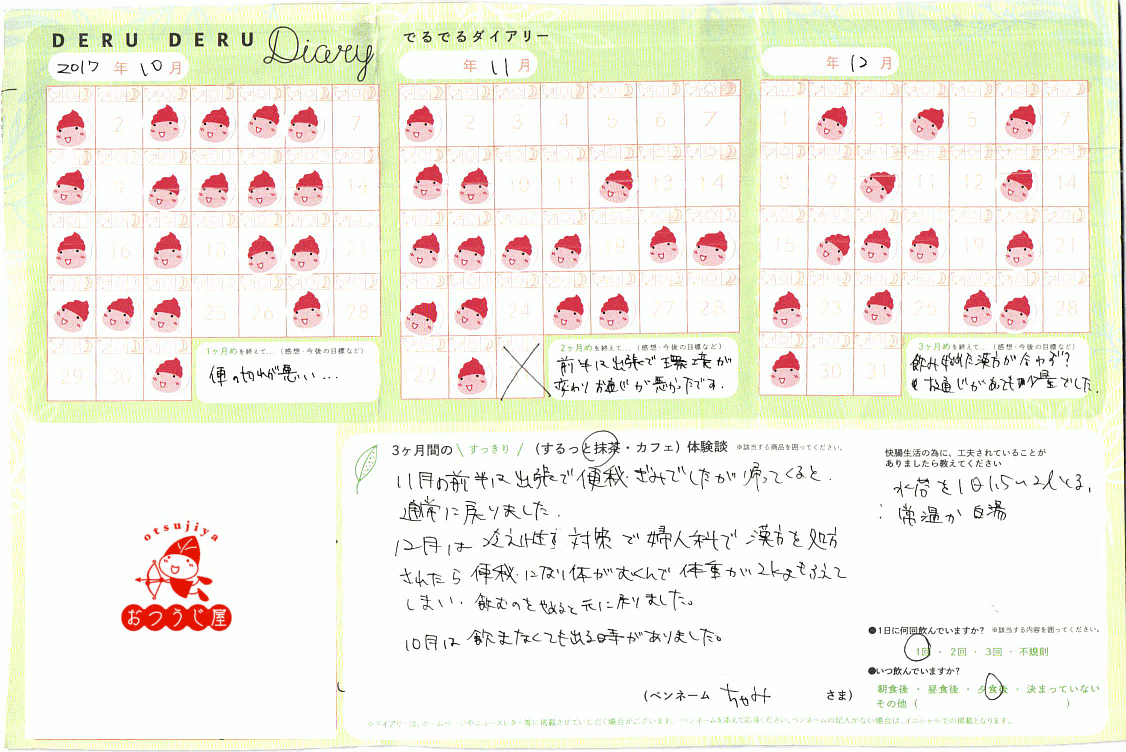 DERU DERU Diary でるでるダイアリー
2017 年 10 月
年 11 月
年 12 月
2 7
9 14
16 18 21
25 26 28
29 30
1 2 3 4 5 6 7
10 11 13 14
19
27 28
29
1 3 5 7
8 9 11 12 14
15 18 21
22 25 28
30 31
1ヶ月めを終えて… (感想・今後の目標など)
便の切れが悪い…
2ヶ月めを終えて… (感想・今後の目標など)
前半は出張で環境が
変わりお通じが悪かったです.
3ヶ月めを終えて… (感想・今後の目標など)
飲み始めた漢方が合わず?
お通じがあっても少量でした.
3ヶ月間の \ すっきり / (するっと抹茶・カフェ) 体験談 ※該当する商品を囲ってください。
11月の前半は出張で便秘ぎみでしたが帰ってくると.
通常に戻りました.
12月は 冷え性対策で婦人科で漢方を処方
されたら便秘になり体がむくんで体重が2kgもふえて
しまい. 飲むのをやめると元に戻りました。
10月は飲まなくても出る日が ありました。
(ペンネーム ちゃみ さま)
快腸生活の為に、工夫されていることが
ありましたら教えてください
水分を1日1.5〜2ℓとる.
: 常温か白湯
●1日に何回飲んでいますか? ※該当する内容を囲ってください。
1回 ・ 2回 ・ 3回 ・ 不規則
●いつ飲んでいますか?
朝食後 ・ 昼食後 ・ 夕食後 ・ 決まっていない
その他 ( )
※ダイアリーは、ホームページやニュースレター等に掲載させていただく場合がございます。ペンネームを添えて応募ください。ペンネームの記入がない場合は、イニシャルでの掲載となります。
otsujiya
おつうじ屋